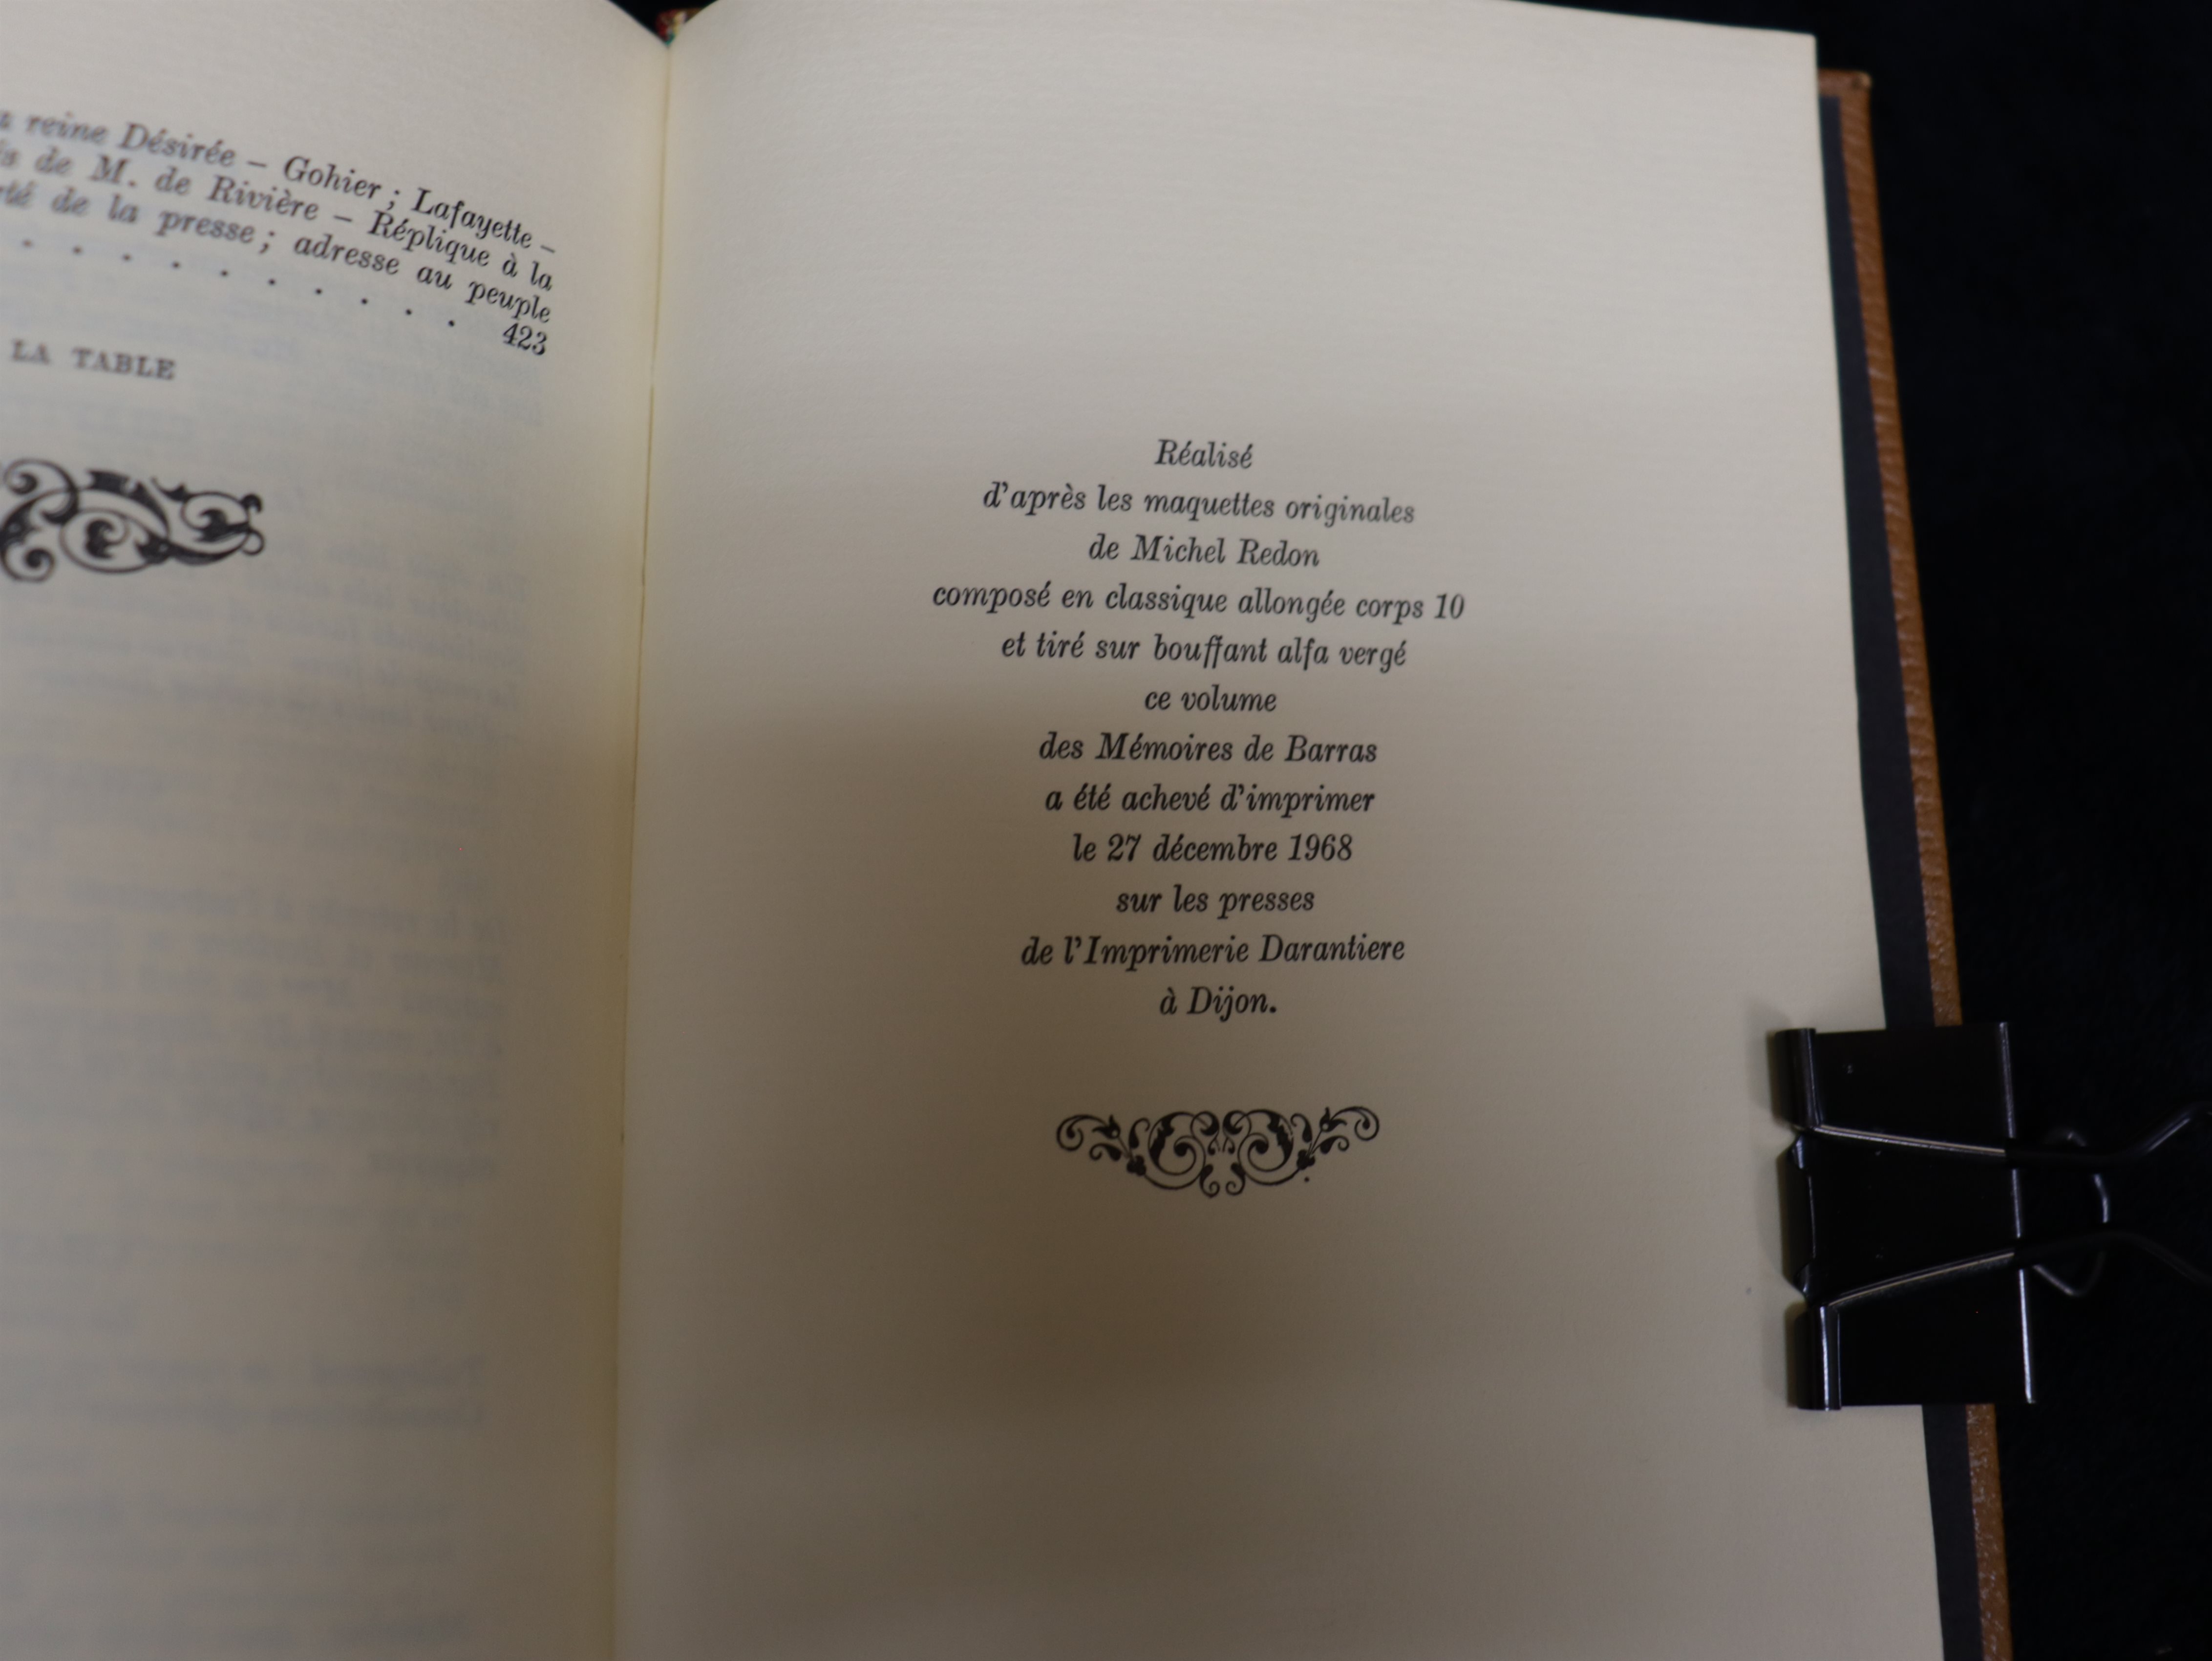 reine Désirée – Gohier ; Lafayette –
de M. de Rivière – Réplique à la
de la presse ; adresse au peuple
. . . . . . . . . . 423
LA TABLE
Réalisé
d'après les maquettes originales
de Michel Redon
composé en classique allongée corps 10
et tiré sur bouffant alfa vergé
ce volume
des Mémoires de Barras
a été achevé d'imprimer
le 27 décembre 1968
sur les presses
de l'Imprimerie Darantiere
à Dijon.